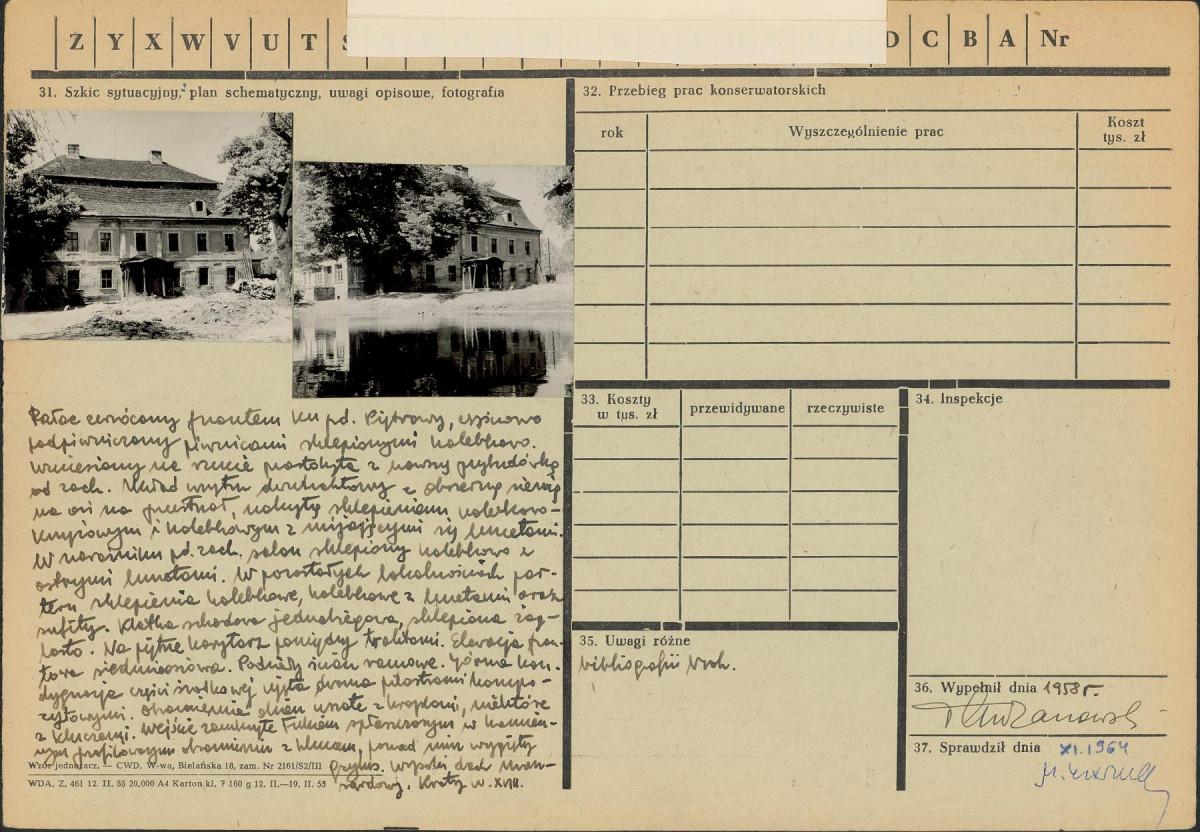 Z Y X W V U T S D C B A Nr
31. Szkic sytuacyjny, plan schematyczny, uwagi opisowe, fotografia
Pałac zwrócony frontem ku pd. Piętrowy, częściowo
podpiwniczony piwnicami sklepionymi kolebkowo.
Wzniesiony na rzucie prostokąta z nowszą przybudówką
od zach. Układ wnętrz dwutraktowy z obszerną sienią
na osi na przestrzał, nakrytą sklepieniami kolebkowo-
krzyżowym i kolebkowym z mijającymi się lunetami.
W narożniku pd. zach. salon sklepiony kolebkowo z
ostrymi lunetami. W pozostałych lokalnościach par-
teru sklepienia kolebkowe, kolebkowe z lunetami oraz
sufity. Klatka schodowa jednobiegowa, sklepiona żag-
lasto. Na piętrze korytarz pomiędzy traktami. Elewacja fron-
towa siedmioosiowa. Podziały ścian ramowe. Górna kon-
dygnacja części środkowej ujęta dwoma pilastrami kompo-
zytowymi. Obramienia okien uszate z kroplami, niektóre
z kluczami. Wejście zamknięte łukiem spłaszczonym w kamien-
nym profilowanym obramieniu z kluczem, ponad nim wygięty
gzyms. Wysoki dach man-
sardowy. Kraty w. XVIII.
Wzór jednołacz. — CWD, W-wa, Bielańska 18, zam. Nr 2161/S2/III
WDA, Z, 461 12. II. 55 20,000 A4 Karton kl. 7 160 g 12. II.—19. II. 55
32. Przebieg prac konserwatorskich
rok Wyszczególnienie prac Koszt
tys. zł
33. Koszty
w tys. zł przewidywane rzeczywiste
34. Inspekcje
35. Uwagi różne
bibliografii brak.
36. Wypełnił dnia 1958 r.
37. Sprawdził dnia XI.1964